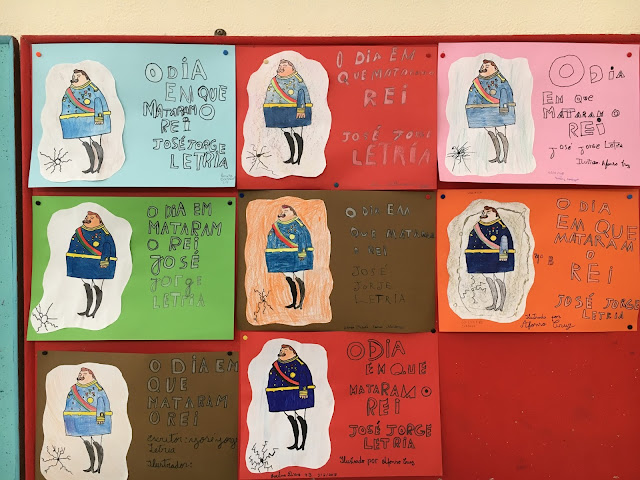 O DIA
EM QUE
MATARAM O
REI
JOSÉ JORGE
LETRIA
O DIA EM
QUE MATARAM
REI
JOSÉ JORGE
LETRIA
O DIA
EM QUE
MATARAM O
REI
José Jorge Letria
Ilustrado Afonso Cruz
O DIA EM
MATARAM
O REI
JOSÉ
JORGE
LETRIA
O DIA EM
QUE MATARAM
O REI
JOSÉ
JORGE
LETRIA
O DIA
EM QUE
MATARAM
O
REI
JOSÉ JORGE
LETRIA
Ilustrado por
Afonso Cruz
nº 8
O DIA EM
QUE
MATARAM
O REI
Escritor:
Letria
Ilustrador:
O DIA
EM QUE
MATARAM O
REI
JOSÉ JORGE
LETRIA
Ilustrado por Afonso Cruz